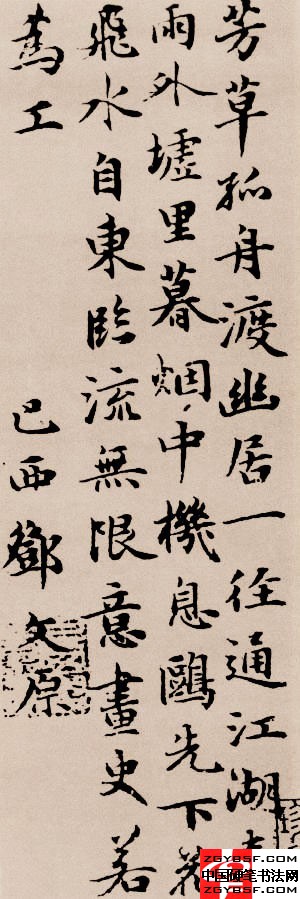 芳草孤舟渡幽居一徑通江湖春
雨外墟里暮烟中機息鷗先下花
飛水自東臨流無限意畫史若
為工
巴西鄧文原
ZGYBSF.COM
中国硬笔书法网
ZGYBSF.COM